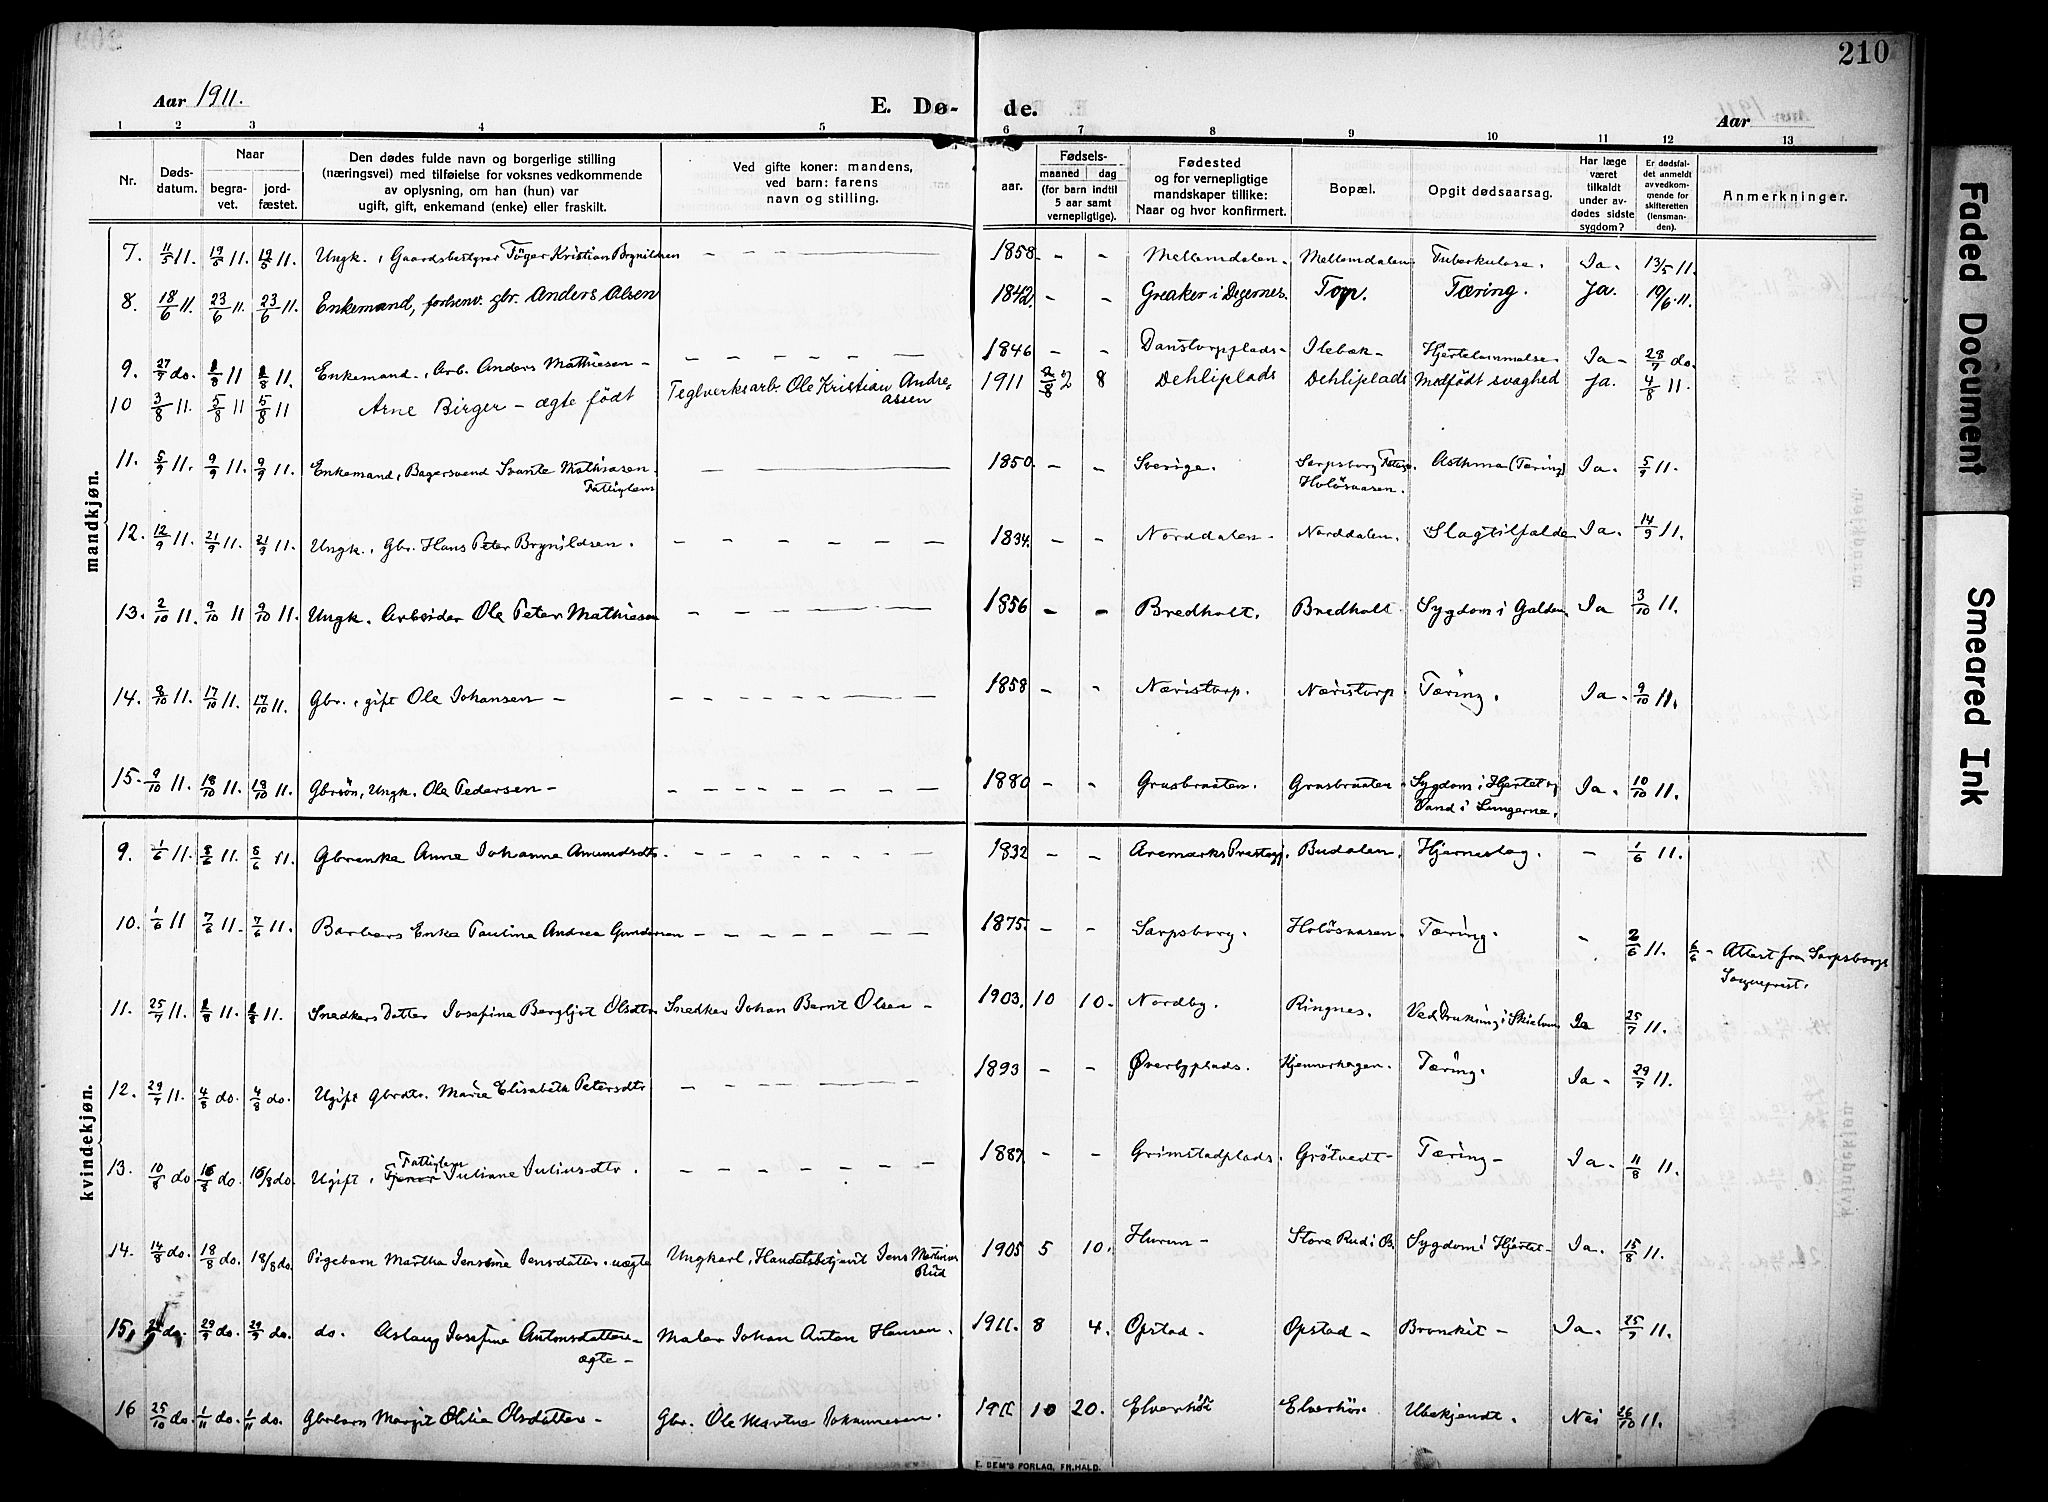 210
Aar 1911.
E. Dø- de.
Aar
1 2 3 4 5 6 7 8 9 10 11 12 13
Nr.
Døds-
datum.
Naar
begra-
vet.
jord-
fæstet.
Den dødes fulde navn og borgerlige stilling
(næringsvei) med tilføielse for voksnes vedkommende
av oplysning, om han (hun) var
ugift, gift, enkemand (enke) eller fraskilt.
Ved gifte koner: mandens,
ved barn: farens
navn og stilling.
aar.
Fødsels-
maaned dag
(for barn indtil
5 aar samt
vernepligtige).
Fødested
og for vernepligtige
mandskaper tillike:
Naar og hvor konfirmert.
Bopæl.
Opgit dødsaarsag.
Har læge
været
tilkaldt
under av-
dødes sidste
sygdom?
Er dødsfal-
det anmeldt
av vedkom-
mende for
skifteretten
(lensman-
den).
Anmerkninger.
mandkjøn.
7. 11/5 11. 19/5 11. 19/5 11. Ungk., Gaardsbestyrer Töger Kristian Brynildsen - - - 1858 - - Mellemdalen. Mellemdalen. Tuberkulose. Ja. 13/5 11.
8. 18/6 11. 23/6 11. 23/6 11. Enkemand, forhenv. gbr. Anders Olsen 1842. - - Greaker i Degernes. Torp. Tæring. Ja. 19/6 11.
9. 27/7 do. 1/8 11 1/8 11. Enkemand., Arb. Anders Mathiesen - - - - 1846 - - Danstorpplads - Ilebæk - Hjertelammelse Ja - 28/7 do.
10 3/8 11. 5/8 11 5/8 11 Arne Birger - ægte født Teglverksarb. Ole Kristian Andre-
assen 1911 8 Dehliplads Dehliplads Medfödt svaghed Ja. 4/8 11.
11. 5/9 11. 9/9 11. 9/9 11. Enkemand, Bagersvend Svante Mathiasen. - - - 1850. - - Sverige. Sarpsborg Asthma (Tæring) Ja. 5/9 11.
Fattiglem Holösaasen.
12. 12/9 11. 21/9 11. 21/9 11. Ungk., Gbr. Hans Peter Brynildsen. - - - 1834. - - Norddalen - Norddalen. Slagtilfælde Ja. 14/9 11.
13. 2/10 11. 9/10 11 9/10 11. Ungk. Arbeider Ole Peter Mathiesen - - - 1856 - - Bredholt. Bredholt. Sygdom i Galden Ja 3/10 11.
14. 8/10 11. 17/10 11. 17/10 11. Gbr., gift Ole Johansen - - - - 1858 - - Næristorp. Næristorp. Tæring. Ja - 9/10 11.
15. 9/10 11. 18/10 11. 18/10 11. Gbrsön, Ungk. Ole Pedersen - - - - 1880 - - Grusbraaten. Grusbraaten. Sygdom i Hjertet og Ja. 10/10 11.
Vand i Lungerne.
kvindekjøn.
9. 1/6 11. 8/6 11. 8/6 11. Gbrenke Anne Johanne Amundsdtr. - - - 1832 - - Aremarks Prestegj. Budalen. Hjerneslag. - 1/6 11.
10. 1/6 11 7/6 11. 7/6 11. Barbers Enke Paulina Andrea Gundersen - - - 1875. - - Sarpsborg. Holösaasen. Tæring. - 2/6 11. 6/6 - Attest fra Sarpsborgs
Sogneprest.
11. 25/7 11. 1/8 11. 1/8 11. Snedkers Datter Josefine Bergljot Olsdtr. Snedker Johan Bernt Olsen - 1903. 10 10. Nordby. Ringnes. Ved Drukning i Ja 25/7 11.
12. 29/7 11. 4/8 do. 4/8 do. Ugift Gbrdtr. Marie Elisabeth Petersdtr - - - 1893 - - Øverbyplads. Kjennerhagen. Tæring. Ja - 29/7 11.
13. 10/8 do 16/8 do. 16/8 do. Ugift, Fattiglem Juliane Juliusdtr. - - - 1887. - - Grimstadplads. Grötvedt - Tæring - Ja - 11/8 11.
14. 14/8 do. 18/8 do. 18/8 do. Pigebarn Martha Jensine Jensdatter. uægte Ungkarl, Handelsbetjent Jens Martinius
Rud 1905 5 10. Hurum - Store Rud i B. Sygdom i Hjertet - Ja. 15/8 11.
15. 29/9 do. 29/9 do. do. Aslaug Josefine Antonsdatter - Maler Johan Anton Hansen. 1911. 8 4. Opstad - Opstad - Bronkit - Ja. 25/9 11.
ægte -
16 25/10 do. 1/11 do. 1/11 do. Gbrbarn Margit Otilia Olsdatter - Gbr. Ole Martin Johannesen. 1911 10 20. Elverhöi Elverhöi. Ubekjendt. Nei 26/10 11.
E. SEM'S FORLAG, FR.HALD.
Faded Document
Smeared Ink